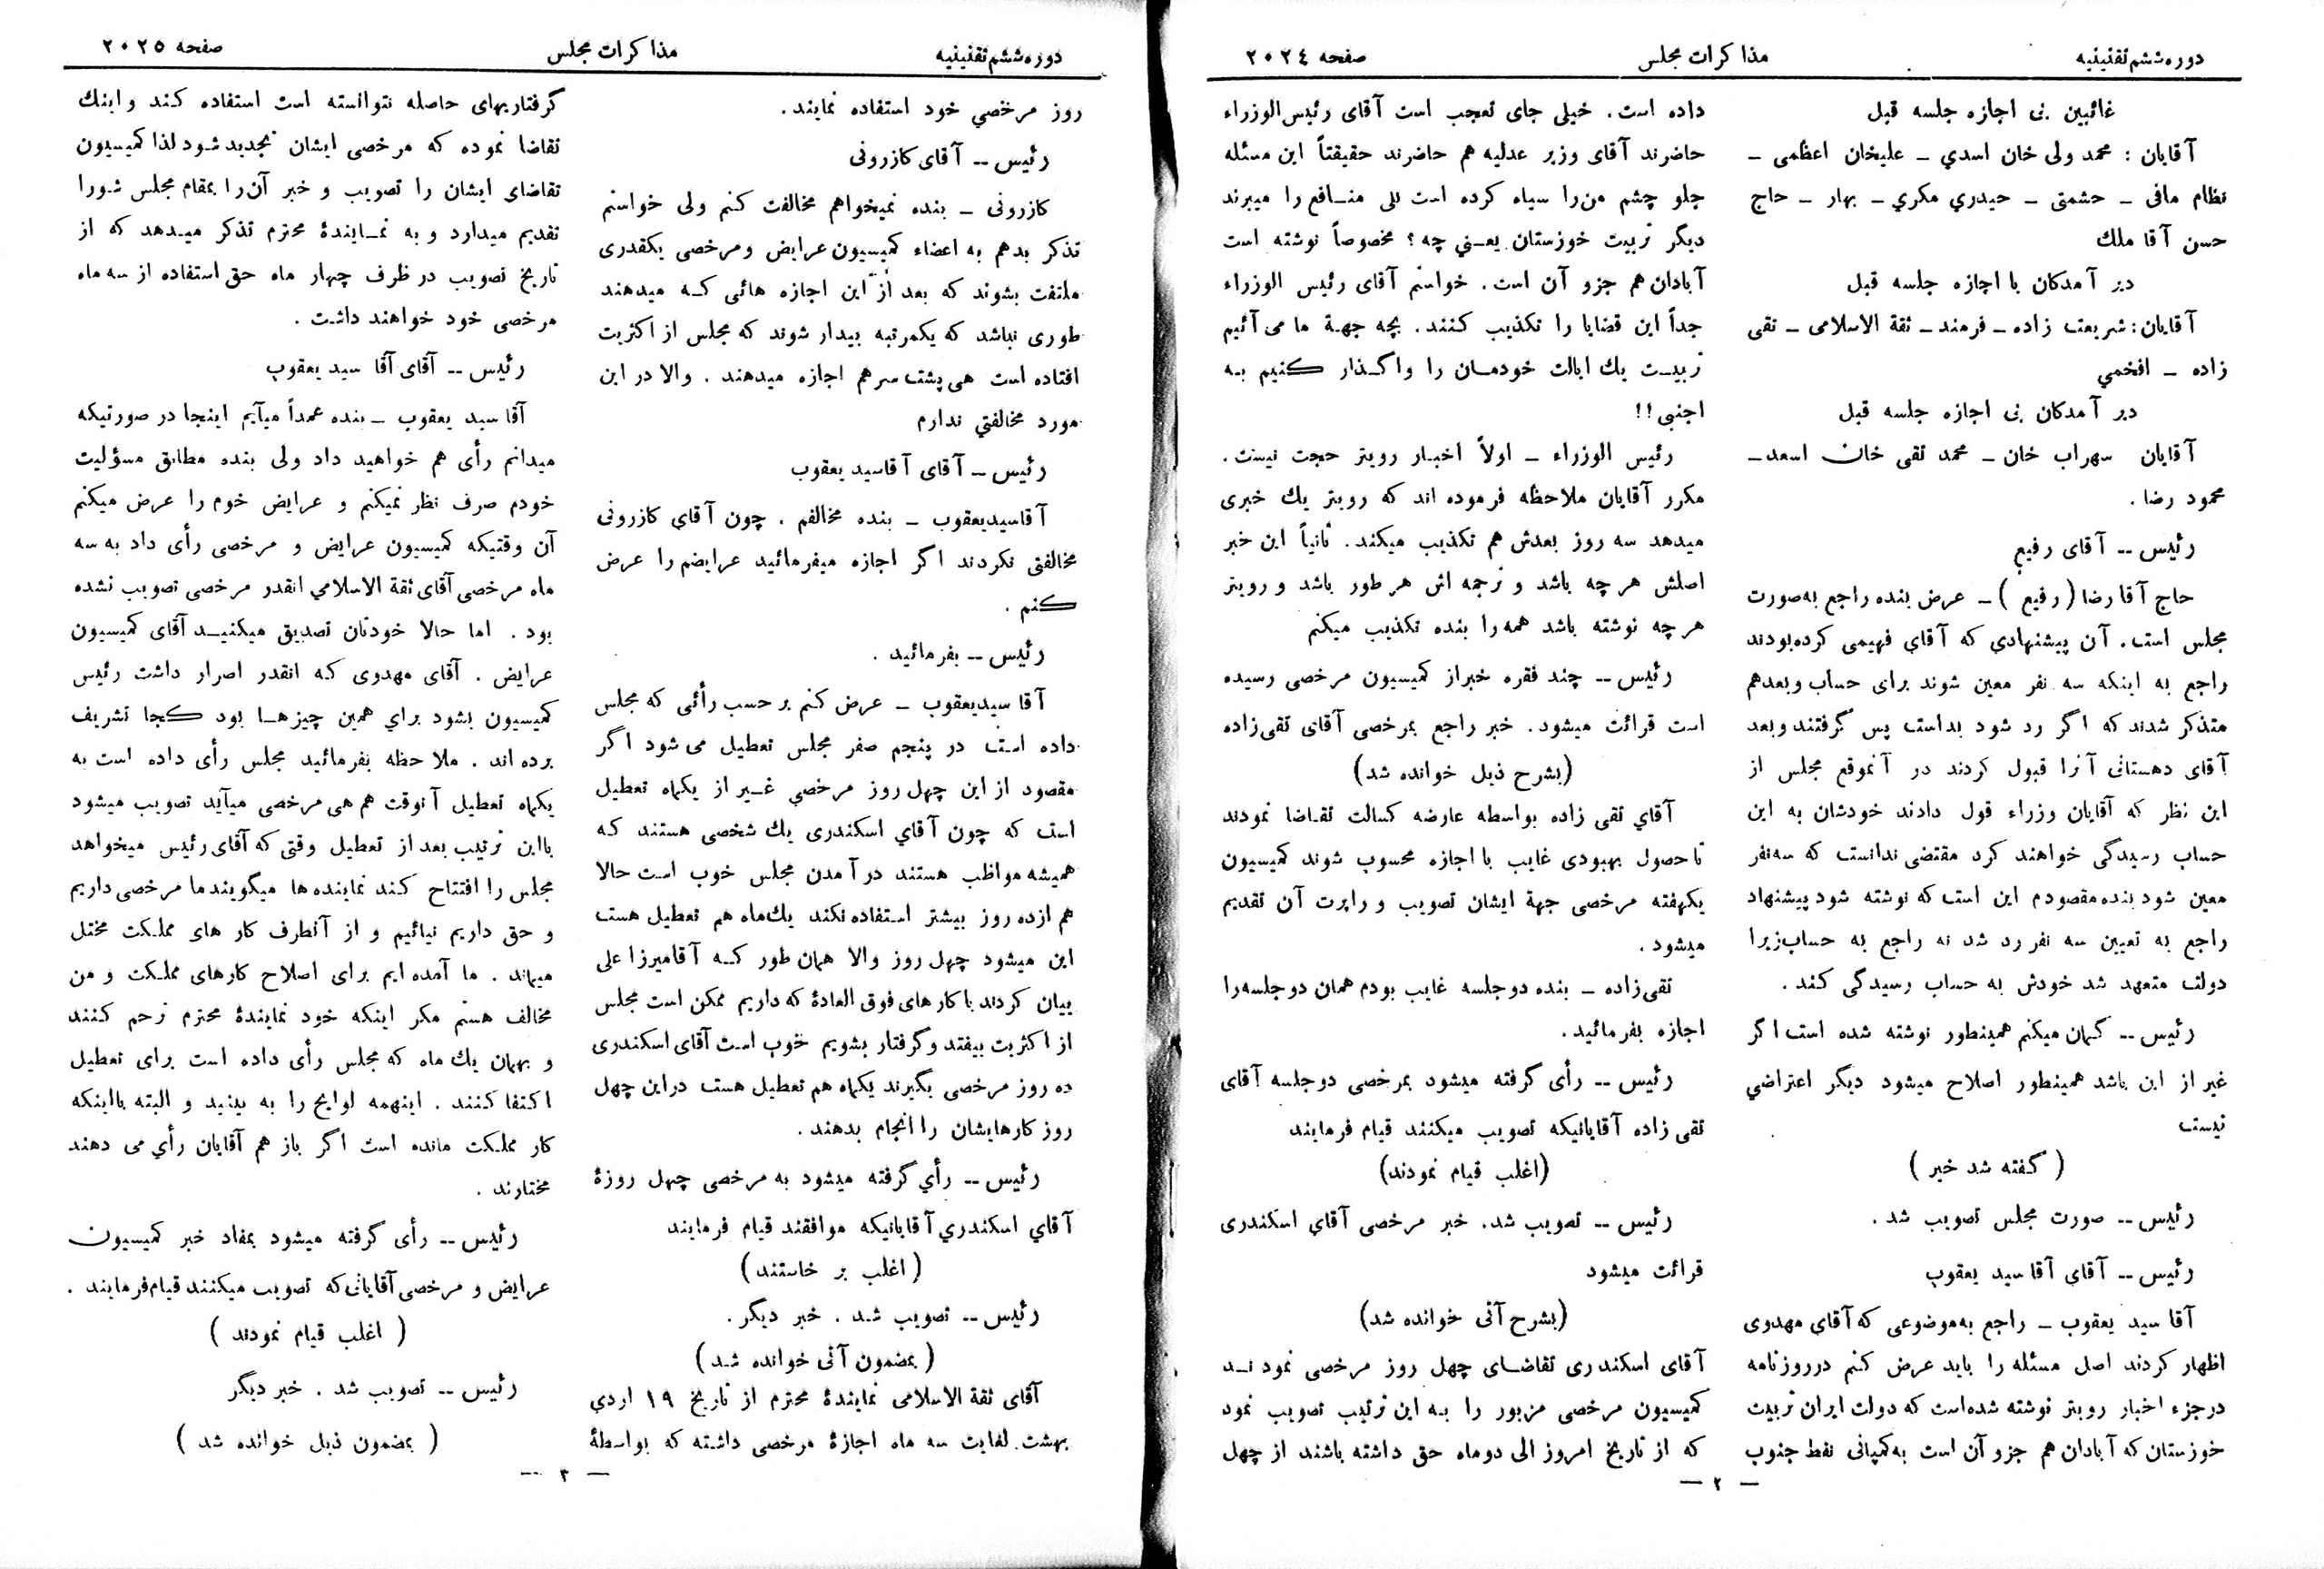 دوره ششم تقنینیه
مذاکرات مجلس
صفحه ۲۰۲٤
غائبین بی اجازه جلسه قبل
آقایان : محمد ولی خان اسدي ـ علیخان اعظمی ـ
نظام مافی ـ حشمتی ـ حیدري مکري ـ بهار ـ حاج
حسن آقا ملك
دیر آمدکان با اجازه جلسه قبل
آقایان: شریعت زاده ـ فرمند ـ ثقة الاسلامی ـ تقی
زاده ـ افخمي
دیر آمدکان بی اجازه جلسه قبل
آقایان سهراب خان ـ محمد تقی خان اسعد ـ
محمود رضا .
رئیس ــ آقای رفیع
حاج آقا رضا (رفیع) ـ عرض بنده راجع به صورت
مجلس است. آن پیشنهادي که آقای فهیمی کرده بودند
راجع به اینکه سه نفر معین شوند برای حساب وبعدهم
متذکر شدند که اگر رد شود بداست پس گرفتند وبعد
آقای دهستانی آنرا قبول کردند در آنموقع مجلس از
این نظر که آقایان وزراء قول دادند خودشان به این
حساب رسیدگی خواهند کرد مقتضی ندانست که سه نفر
معین شود بنده مقصودم این است که نوشته شود پیشنهاد
راجع به تعیین سه نفر رد شد نه راجع به حساب زیرا
دولت متعهد شد خودش به حساب رسیدگی کند .
رئیس ــ گمان میکنم همینطور نوشته شده است اگر
غیر از این باشد همینطور اصلاح میشود دیگر اعتراضي
نیست
( گفته شد خیر )
رئیس ــ صورت مجلس تصویب شد .
رئیس ــ آقای آقا سید یعقوب
آقا سید یعقوب ـ راجع به موضوعی که آقای مهدوی
اظهار کردند اصل مسئله را باید عرض کنم در روزنامه
در جزء اخبار رویتر نوشته شده است که دولت ایران تربیت
خوزستان که آبادان هم جزو آن است به کمپانی نفط جنوب
داده است . خیلی جای تعجب است آقای رئیس الوزراء
حاضرند آقای وزیر عدلیه هم حاضرند حقیقتاً این مسئله
جلو چشم من را سیاه کرده است للی منافع را میبرند
دیگر تربیت خوزستان یعني چه ؟ مخصوصاً نوشته است
آبادان هم جزو آن است . خواستم آقای رئیس الوزراء
جداً این قضایا را تکذیب کنند. بچه جهة ما می آئیم
تربیت یك ایالت خودمان را واگذار کنیم به
اجنبی !!
رئیس الوزراء ـ اولاً اخبار رویتر حجت نیست .
مکرر آقایان ملاحظه فرموده اند که رویتر یك خبری
میدهد سه روز بعدش هم تکذیب میکند. ثانیاً این خبر
اصلش هر چه باشد و ترجمه اش هر طور باشد و رویتر
هر چه نوشته باشد همه را بنده تکذیب میکنم
رئیس ــ چند فقره خبر از کمیسیون مرخصی رسیده
است قرائت میشود. خبر راجع بمرخصی آقای تقی زاده
(بشرح ذیل خوانده شد)
آقاي تقی زاده بواسطه عارضه کسالت تقاضا نمودند
تا حصول بهبودی غایب با اجازه محسوب شوند کمیسیون
یکهفته مرخصی جهة ایشان تصویب و راپرت آن تقدیم
میشود .
تقی زاده ـ بنده دو جلسه غایب بودم همان دو جلسه را
اجازه بفرمائید .
رئیس ــ رأی گرفته میشود بمرخصی دو جلسه آقای
تقی زاده آقایانیکه تصویب میکنند قیام فرمایند
(اغلب قیام نمودند)
رئیس ــ تصویب شد. خبر مرخصی آقاي اسکندری
قرائت میشود
(بشرح آتی خوانده شد)
آقای اسکندری تقاضای چهل روز مرخصی نمودند
کمیسیون مرخصی مزبور را به این ترتیب تصویب نمود
که از تاریخ امروز الی دو ماه حق داشته باشند از چهل
— ۲ —
دوره ششم تقنینیه
مذاکرات مجلس
صفحه ۲۰۲٥
روز مرخصي خود استفاده نمایند .
رئیس ــ آقای کازرونی
کازرونی ـ بنده نمیخواهم مخالفت کنم ولی خواستم
تذکر بدهم به اعضاء کمیسیون عرایض ومرخصی یکقدری
ملتفت بشوند که بعد از این اجازه هائی که میدهند
طوری نباشد که یکمرتبه بیدار شوند که مجلس از اکثریت
افتاده است هی پشت سرهم اجازه میدهند . والا در این
مورد مخالفتي ندارم
رئیس ــ آقای آقاسید یعقوب
آقاسید یعقوب ـ بنده مخالفم . چون آقاي کازرونی
مخالفتی نکردند اگر اجازه میفرمائید عرایضم را عرض
کنم .
رئیس ــ بفرمائید .
آقا سید یعقوب ـ عرض کنم بر حسب رأئی که مجلس
داده است در پنجم صفر مجلس تعطیل می شود اگر
مقصود از این چهل روز مرخصي غیر از یکماه تعطیل
است که چون آقاي اسکندری یك شخصی هستند که
همیشه مواظب هستند در آمدن مجلس خوب است حالا
هم از ده روز بیشتر استفاده نکند یك ماه هم تعطیل هست
این میشود چهل روز والا همان طور که آقا میرزا علی
بیان کردند با کار های فوق العادهٔ که داریم ممکن است مجلس
از اکثریت بیفتد وگرفتار بشویم خوب است آقای اسکندری
ده روز مرخصی بگیرند یکماه هم تعطیل هست در این چهل
روز کارهایشان را انجام بدهند .
رئیس ــ رأي گرفته میشود به مرخصی چهل روزهٔ
آقاي اسکندري آقایانیکه موافقند قیام فرمایند
(اغلب بر خاستند)
رئیس ــ تصویب شد . خبر دیگر .
(بمضمون آتی خوانده شد)
آقای ثقة الاسلامی نمایندهٔ محترم از تاریخ ۱۹ اردي
بهشت لغایت سه ماه اجازهٔ مرخصی داشته که بواسطهٔ
گرفتاریهای حاصله نتوانسته است استفاده کند و اینك
تقاضا نموده که مرخصی ایشان تجدید شود لذا کمیسیون
تقاضای ایشان را تصویب و خبر آن را بمقام مجلس شورا
تقدیم میدارد و به نمایندهٔ محترم تذکر میدهد که از
تاریخ تصویب در ظرف چهار ماه حق استفاده از سه ماه
مرخصی خود خواهند داشت .
رئیس ــ آقای آقا سید یعقوب
آقا سید یعقوب ـ بنده عمداً میآیم اینجا در صورتیکه
میدانم رأی هم خواهید داد ولی بنده مطابق مسؤلیت
خودم صرف نظر نمیکنم و عرایض خوم را عرض میکنم
آن وقتیکه کمیسیون عرایض و مرخصی رأی داد به سه
ماه مرخصی آقای ثقة الاسلامي انقدر مرخصی تصویب نشده
بود . اما حالا خودتان تصدیق میکنید آقای کمیسیون
عرایض . آقای مهدوی که انقدر اصرار داشت رئیس
کمیسیون بشود براي همین چیزها بود کجا تشریف
برده اند . ملاحظه بفرمائید مجلس رأی داده است به
یکماه تعطیل آنوقت هم هی مرخصی میآید تصویب میشود
بااین ترتیب بعد از تعطیل وقتی که آقای رئیس میخواهد
مجلس را افتتاح کند نماینده ها میگویند ما مرخصی داریم
و حق داریم نیائیم و از آنطرف کار های مملکت مختل
میماند . ما آمده ایم برای اصلاح کارهای مملکت و من
مخالف هستم مکر اینکه خود نمایندهٔ محترم ترحم کنند
و بهمان یك ماه که مجلس رأی داده است برای تعطیل
اکتفا کنند . اینهمه لوایح را به بینید و البته بااینکه
کار مملکت مانده است اگر باز هم آقایان رأي می دهند
مختارند .
رئیس ــ رأی گرفته میشود بمفاد خبر کمیسیون
عرایض و مرخصی آقایانی که تصویب میکنند قیام فرمایند .
( اغلب قیام نمودند )
رئیس ــ تصویب شد . خبر دیگر
( بمضمون ذیل خوانده شد )
— ۳ —